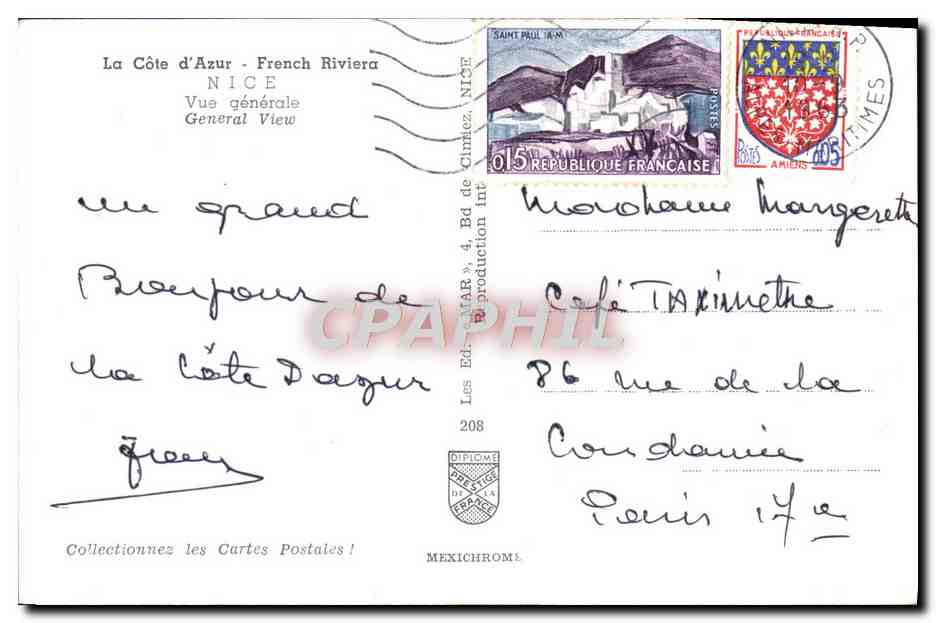 La Côte d'Azur - French Riviera
NICE
Vue générale
General View
un grand
Bonjour de
la Côte Dazur
Collectionnez les Cartes Postales !
Les Ed. « MAR », 4, Bd de Cimiez, NICE
Reproduction int
208
DIPLOME
PRESTIGE
DE LA
FRANCE
MEXICHROME
SAINT PAUL (A-M)
POSTES
0,15 REPUBLIQUE FRANÇAISE
REPUBLIQUE FRANÇAISE
POSTES 0,05
AMIENS
1963
MARITIMES
CPAPHIL
Café TAXimetre
86 rue de la
Condamine
Paris 17e